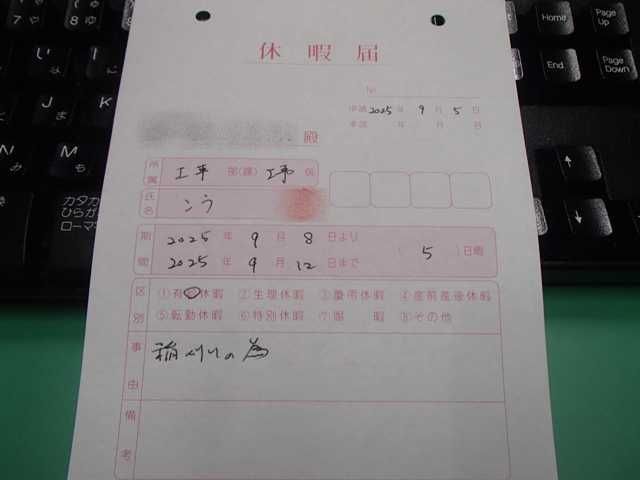 休暇届
No.
申請 2025年 9月 5日
承認 年 月 日
殿
所属 工事 部(課) 工事 係
氏名 こう
期間 2025年 9月 8日より
2025年 9月 12日まで
( 5 )日間
区別 ①有給休暇 ②生理休暇 ③慶弔休暇 ④産前産後休暇
⑤転勤休暇 ⑥特別休暇 ⑦賜暇 ⑧その他
事由 稲刈りの為
備考
Home
Page Up
End
Page Down
い
ま
J
N
M
み
も
カタカ
ひらが
ローマ